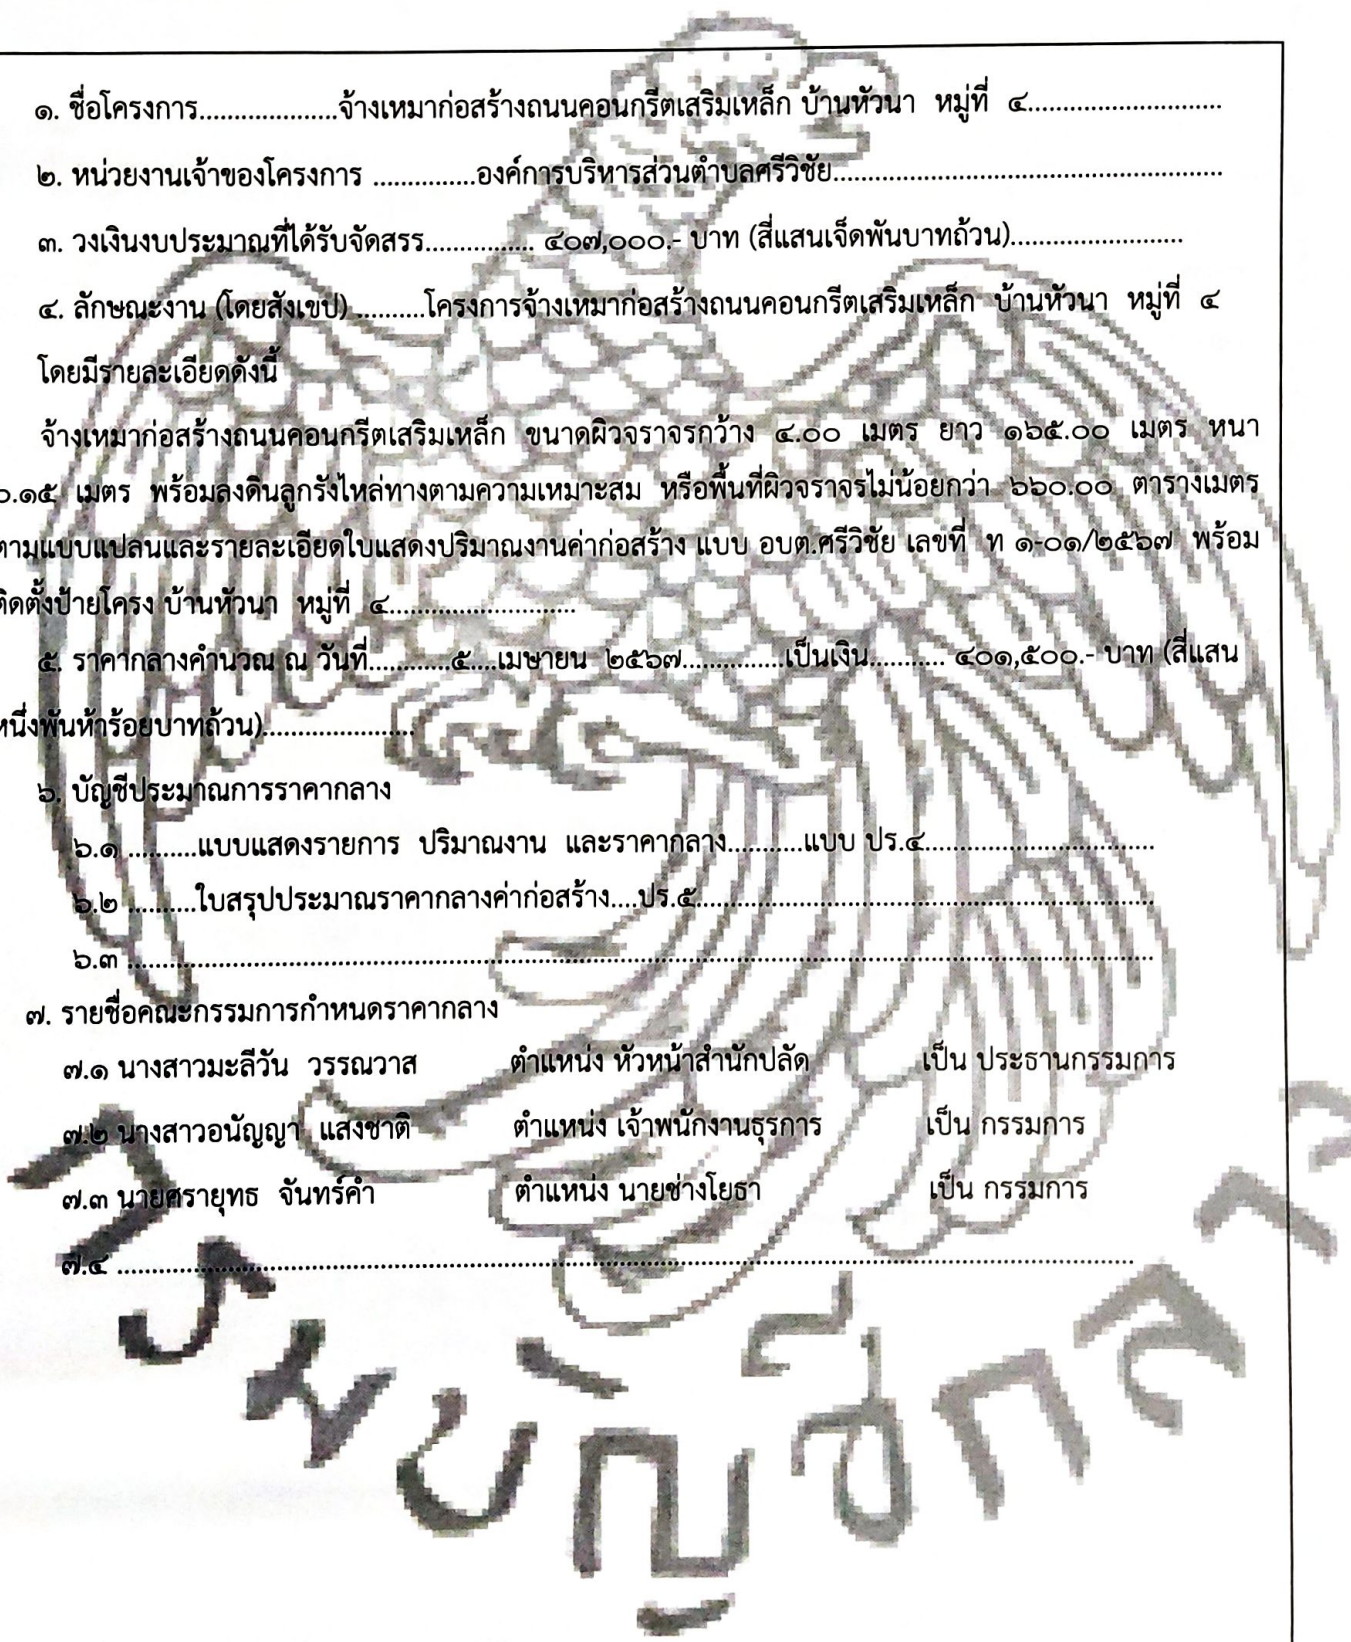 ๑. ชื่อโครงการ....................จ้างเหมาก่อสร้างถนนคอนกรีตเสริมเหล็ก บ้านหัวนา หมู่ที่ ๔............................
๒. หน่วยงานเจ้าของโครงการ ...............องค์การบริหารส่วนตำบลศรีวิชัย.........................................................
๓. วงเงินงบประมาณที่ได้รับจัดสรร................ ๔๐๗,๐๐๐.- บาท (สี่แสนเจ็ดพันบาทถ้วน).........................
๔. ลักษณะงาน (โดยสังเขป) ..........โครงการจ้างเหมาก่อสร้างถนนคอนกรีตเสริมเหล็ก บ้านหัวนา หมู่ที่ ๔
โดยมีรายละเอียดดังนี้
จ้างเหมาก่อสร้างถนนคอนกรีตเสริมเหล็ก ขนาดผิวจราจรกว้าง ๔.๐๐ เมตร ยาว ๑๖๕.๐๐ เมตร หนา
๐.๑๕ เมตร พร้อมลงดินลูกรังไหล่ทางตามความเหมาะสม หรือพื้นที่ผิวจราจรไม่น้อยกว่า ๖๖๐.๐๐ ตารางเมตร
ตามแบบแปลนและรายละเอียดใบแสดงปริมาณงานค่าก่อสร้าง แบบ อบต.ศรีวิชัย เลขที่ ท ๑-๐๑/๒๕๖๗ พร้อม
ติดตั้งป้ายโครง บ้านหัวนา หมู่ที่ ๔...........................
๕. ราคากลางคำนวณ ณ วันที่............๕....เมษายน ๒๕๖๗...............เป็นเงิน........... ๔๐๑,๕๐๐.- บาท (สี่แสน
หนึ่งพันห้าร้อยบาทถ้วน)......................
๖. บัญชีประมาณการราคากลาง
๖.๑ ..........แบบแสดงรายการ ปริมาณงาน และราคากลาง...........แบบ ปร.๔..................................
๖.๒ ..........ใบสรุปประมาณราคากลางค่าก่อสร้าง....ปร.๕....................................................................
๖.๓ ........................................................................................................................................................
๗. รายชื่อคณะกรรมการกำหนดราคากลาง
๗.๑ นางสาวมะลีวัน วรรณวาส ตำแหน่ง หัวหน้าสำนักปลัด เป็น ประธานกรรมการ
๗.๒ นางสาวอนัญญา แสงชาติ ตำแหน่ง เจ้าพนักงานธุรการ เป็น กรรมการ
๗.๓ นายศรายุทธ จันทร์คำ ตำแหน่ง นายช่างโยธา เป็น กรรมการ
๗.๔ ......................................................................................................................................................
กรมบัญชีกลาง